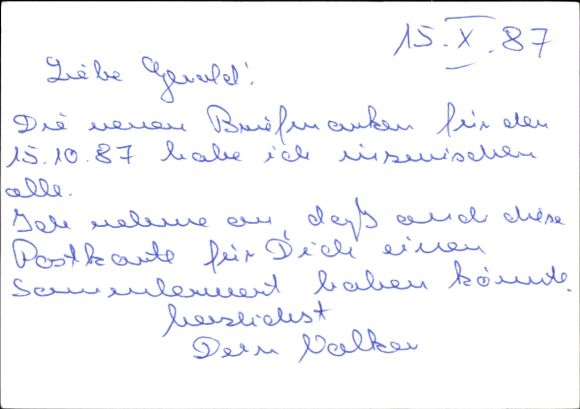 15.X.87
Liebe Gerald!
Die neuen Briefmarken für den
15.10.87 habe ich inzwischen
alle.
Ich nehme an, daß auch diese
Postkarte für Dich einen
Sammlerwert haben könnte.
herzlichst
Dein Volker